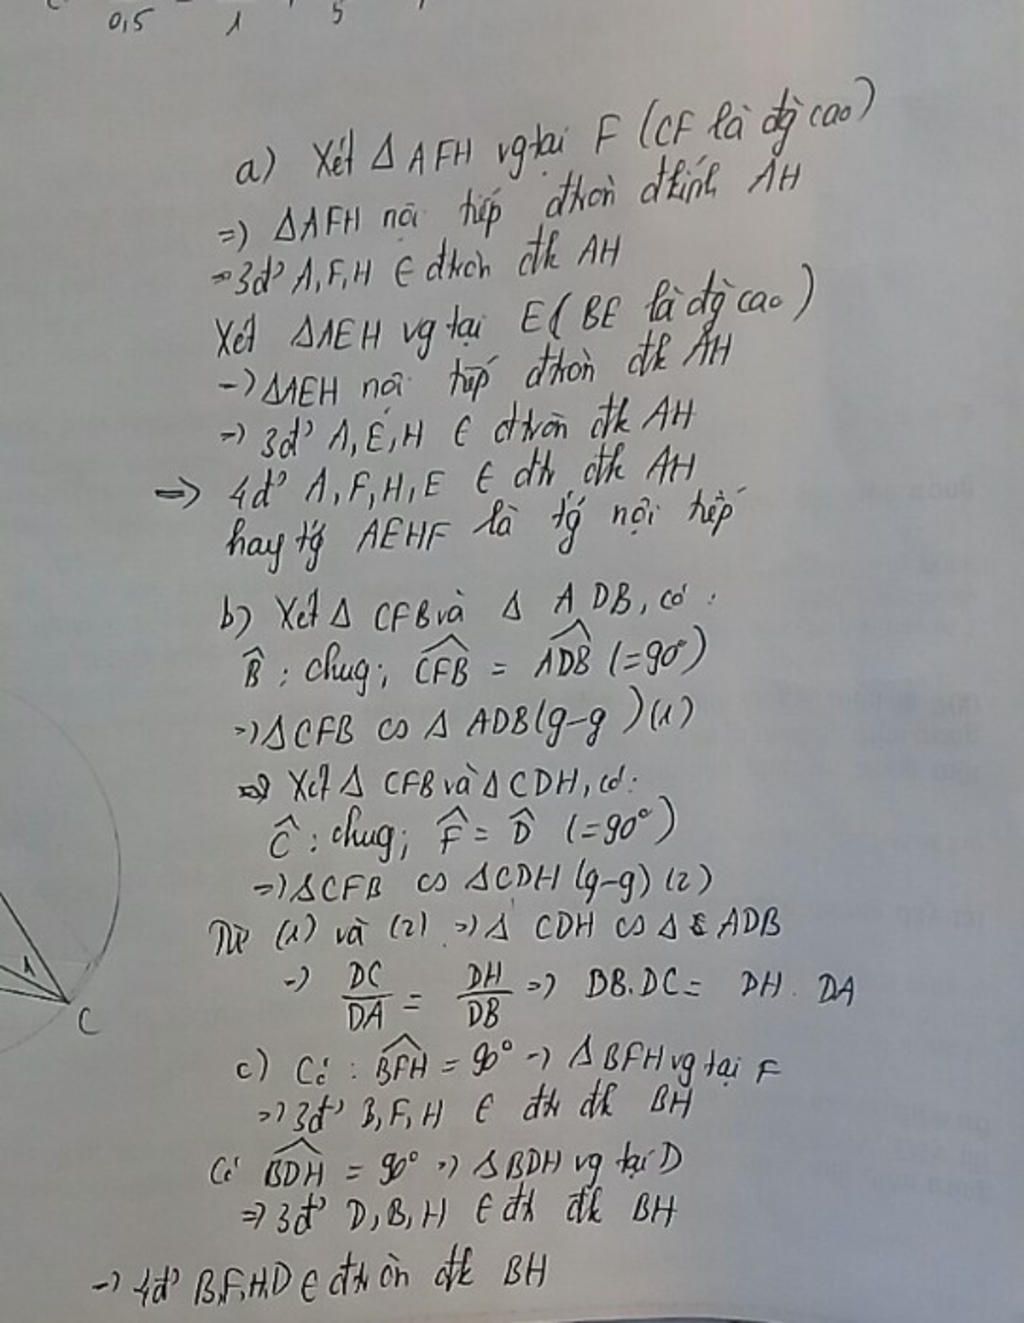 0,5 1 5
a) Xét Δ AFH vg tại F (CF là đg cao)
=) ΔAFH nội tiếp đtròn đkính AH
=) 3đ' A, F, H ∈ đtròn đk AH
Xét ΔAEH vg tại E( BE là đg cao)
=) ΔAEH nội tiếp đtròn đk AH
=) 3đ' A, E, H ∈ đtròn đk AH
=> 4đ' A, F, H, E ∈ đtr đk AH
hay tg AEHF là tg nội tiếp
b) Xét Δ CFB và Δ ADB, có :
B̂ : chug; CFB = ADB (=90°)
=) Δ CFB ∽ Δ ADB (g-g) (1)
Xét Δ CFB và Δ CDH, có:
Ĉ : chug; F̂ = D̂ (=90°)
=) Δ CFB ∽ Δ CDH (g-g) (2)
Từ (1) và (2) =) Δ CDH ∽ Δ ADB
=) DC/DA = DH/DB =) DB.DC = DH . DA
1
C
c) Có : BFH = 90° =) Δ BFH vg tại F
=) 3đ' B, F, H ∈ đtr đk BH
Có BDH = 90° =) Δ BDH vg tại D
=) 3đ' D, B, H ∈ đtr đk BH
=) 4đ' B, F, H, D ∈ đtròn đk BH